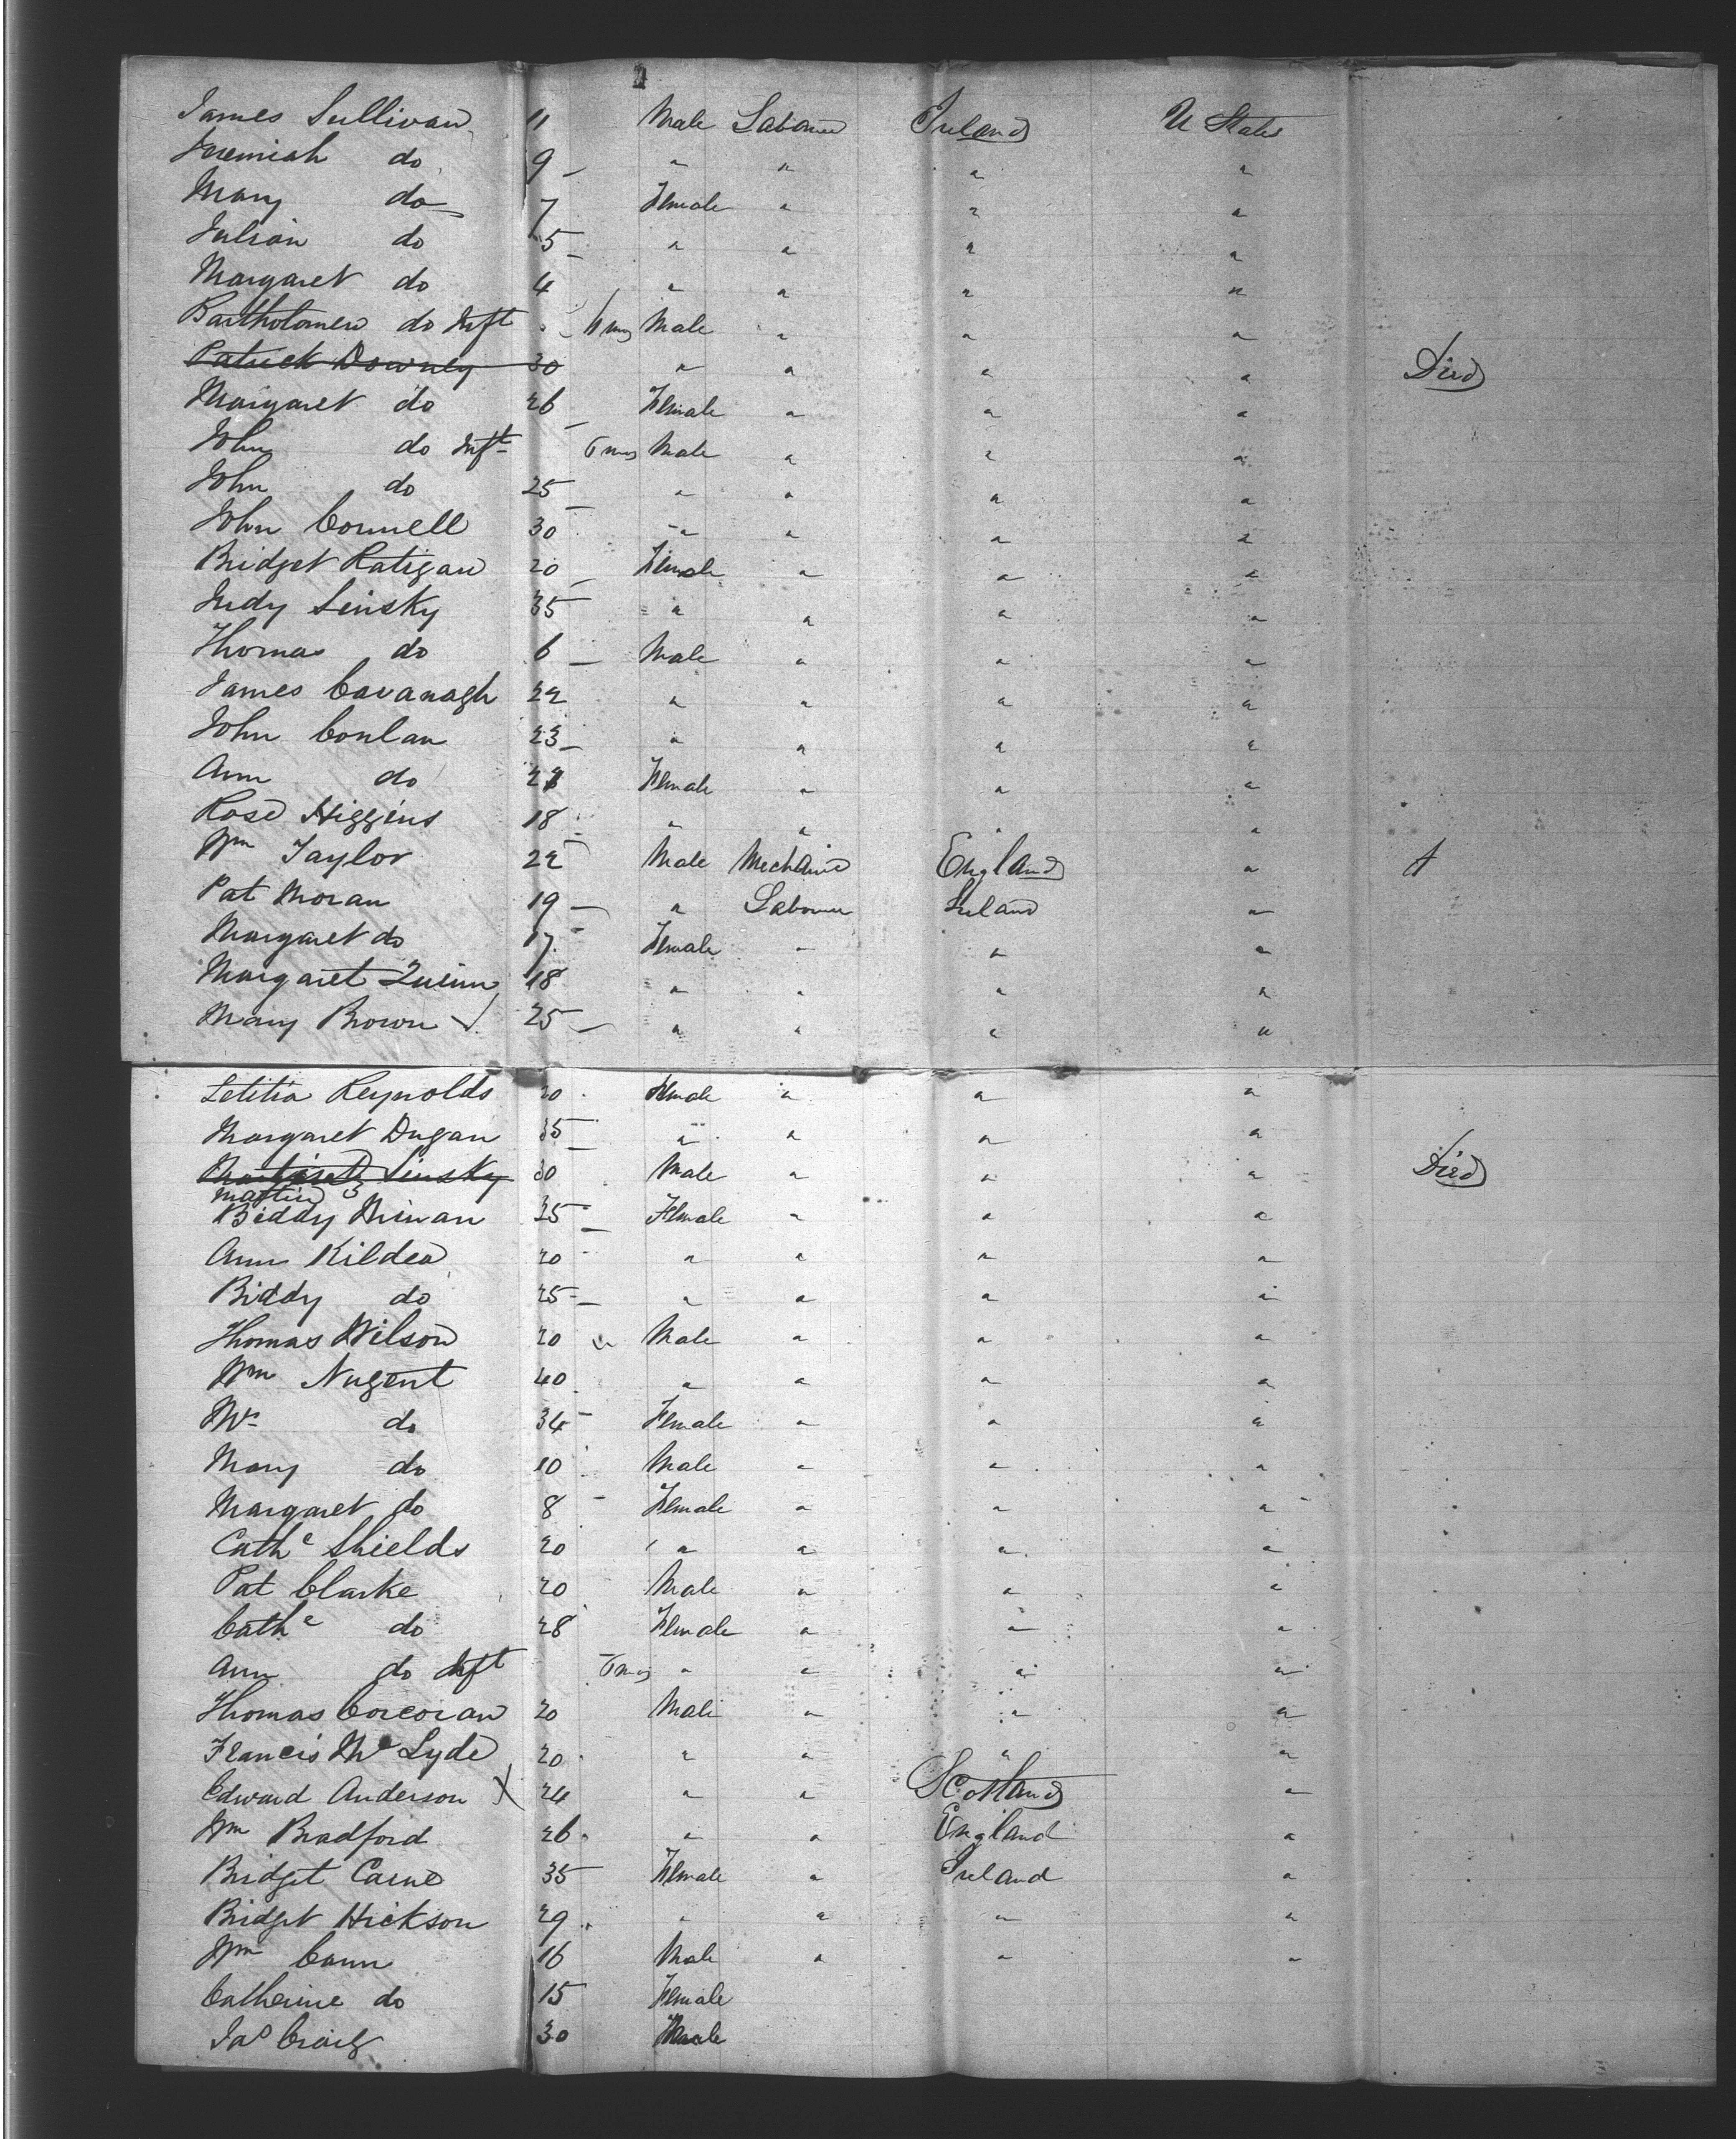 James Sullivan 11 Male Labourer Ireland U States
Jeremiah do 9 " " " "
Mary do 7 Female " " "
Julian do 5 " " " "
Margaret do 4 " " " "
Bartholomew do Inft mos Male " " "
Patrick Downey 30 " " " " Died
Margaret do 26 Female " " "
John do Inft 6 mos Male " " "
John do 25 " " " "
John Connell 30 " " " "
Bridget Ratigan 20 Female " " "
Judy Linsky 35 " " " "
Thomas do 6 Male " " "
James Cavanagh 22 " " " "
John Conlan 23 " " " "
Ann do Female " " "
Rose Higgins 18 " " " "
Wm Taylor 22 Male Mechanic England "
Pat Moran 19 " Labourer Ireland "
Margaret do 17 Female " " "
Margaret Quinn 18 " " " "
Mary Brown 25 " " " "
Letitia Reynolds 20 Female " " "
Margaret Dugan 35 " " " "
Linsky 30 Male " " " Died
Martin
Biddy 35 Female " " "
Ann Kildea 20 " " " "
Biddy do 25 " " " "
Thomas Wilson 20 " Male " " "
Wm Nugent 40 " " " "
Mrs do 34 Female " " "
Mary do 10 Male " " "
Margaret do 8 Female " " "
Cathe Shields 20 " " " "
Pat Clarke 20 Male " " "
Cathe do 28 Female " " "
Ann do Inft 6 mos " " " "
Thomas Corcoran 20 Male " " "
Francis Mc Lyde 20 " " " "
Edward Anderson X 24 " " Scotland "
Wm Bradford 26 " " England "
Bridget Carne 35 Female " Ireland "
Bridget Hickson 29 " " " "
Wm Cann 16 Male " " "
Catherine do 15 Female
Jas Craig 30 Male